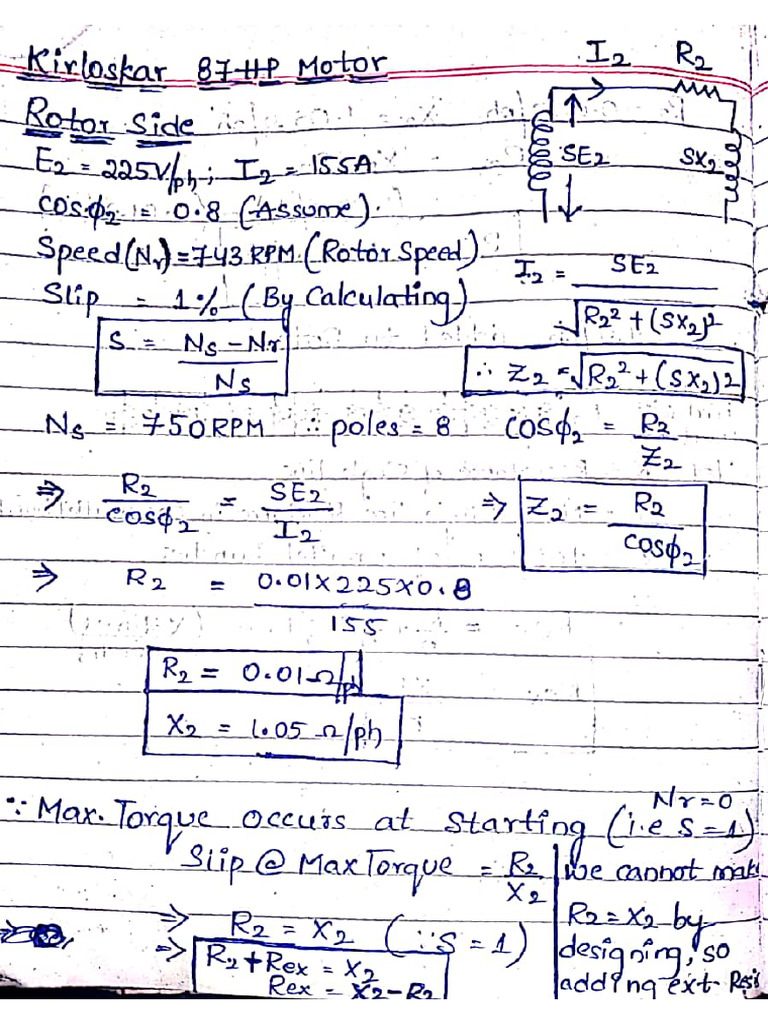 Kirloskar 87-HP Motor
I2 R2
Rotor Side
SE2 SX2
E2 = 225V/ph; I2 = 155A
cosφ2 = 0.8 (Assume).
Speed(Nr) = 743 RPM (Rotor Speed)
Slip = 1% (By Calculating)
I2 = SE2 / √R2² + (SX2)²
S = Ns - Nr / Ns
∴ Z2 = √R2² + (SX2)2
Ns = 750RPM ∴ poles = 8 cosφ2 = R2 / Z2
⇒ R2 / cosφ2 = SE2 / I2
⇒ Z2 = R2 / cosφ2
⇒ R2 = 0.01X225X0.8 / 155
R2 = 0.01Ω/ph
X2 = 1.05 Ω/ph
Nr=0
∵ Max. Torque occurs at starting (i.e S=1)
Slip @ Max Torque = R2 / X2
⇒ R2 = X2 (∵ S = 1)
⇒ R2+Rex = X2
Rex = X2-R2
we cannot mak
R2=X2 by
designing, so
adding ext. Resi